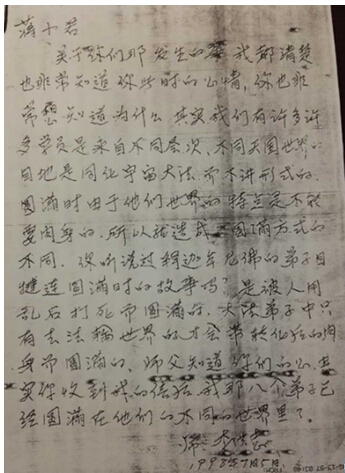 蒋十君
关于你们那发生的事我都清楚
也非常知道你此时的心情，你也非
常想知道为什么 其实我们有许多许
多学员是来自不同层次、不同天国世界、
目地是同化宇宙大法而不讲形式的。
圆满时由于他们世界的特点是不能
要肉身的，所以就造成了圆满方式的
不同。你听说过释迦牟尼佛的弟子目
犍连圆满时的故事吗？是被人用
乱石打死而圆满的，大法弟子中只
有去法轮世界的才会带转化后的肉
身而圆满的，师父知道你们的心，其
实你收到我的信后 我那八个弟子已
经圆满在他们的不同的世界里了。
1998年7月5日